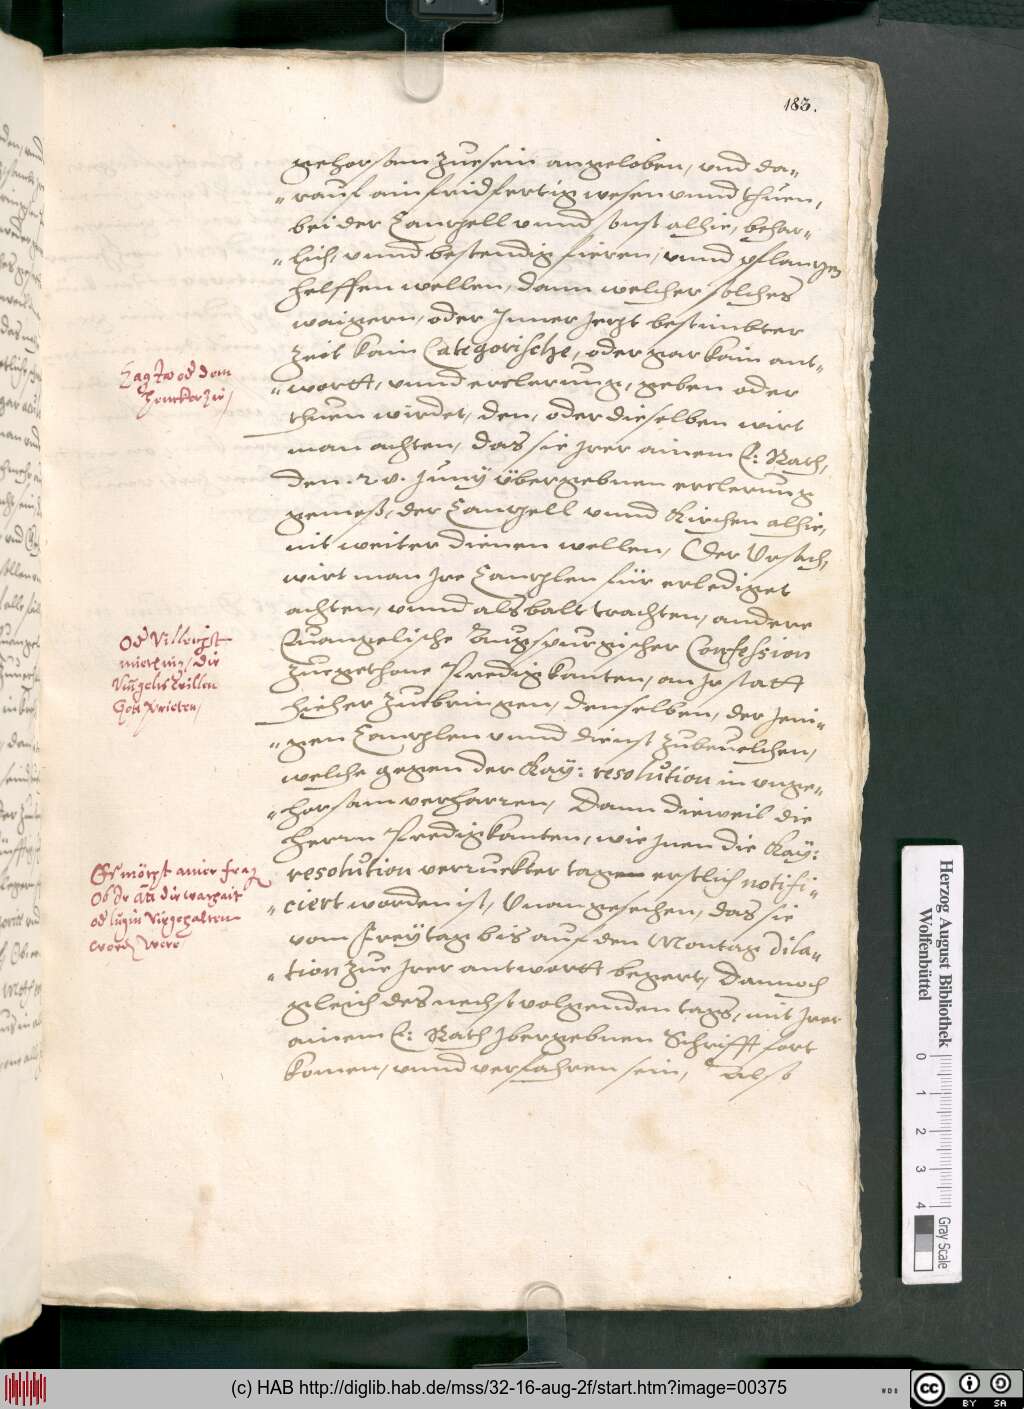 183.
gehorsam zuesein angeloben, vnd da-
rauf ain fridfertig wesen vnnd thuen,
bei der Canzell vnnd sonst alhie, behar-
lich, vnnd bestendig fieren, vnnd pflanzen
helffen wellen, dann welcher solches
waigern, oder Inner jezt bestimbter
Zeit kain Categorische, oder gar kain ant-
wortt, vnnd erclerung, geben oder
thuen wirdet, den, oder dieselben wirt
man achten, das sie jrer ainem E: Rath,
den .2.v. Junÿ übergebnen erclerung
gemeß, der Canzell vnnd Kirchen alhie,
nit weiter dienen wellen, Der Vrsach,
wirt man jre Canzlen für erlediget
achten, vnnd alsbalt trachten, andere
Euangelische Augspurgischer Confession
Zuegethone Predigkanten, an jr statt
hieher zubringen, denselben, der jeni-
gen Canzlen vnnd dienst zubeuelchen,
welche gegen der Kaÿ: resolution in vnge-
horsam verharren, Dann dieweil die
herrn Predigkanten, wie jnen die Kaÿ:
resolution verruckter tagen erstlich notifi-
ciert worden ist, Vnangesechen, das sie
vom Freÿtag bis auf den Montag dila-
tion zue jrer antwortt begert, Dannoch
gleich des nechst volgenden tags, mit jrer
ainem E: Rath jbergebnen Schrifft fort
komen, vnnd verfahren sein, Also
Od Villeicht
Gott
Es möcht ainer frag
Ob Jr die warhait
od lugin
word were
Herzog August Bibliothek
Wolfenbüttel
0 1 2 3 4
Gray Scale
(c) HAB http://diglib.hab.de/mss/32-16-aug-2f/start.htm?image=00375
WDB
cc BY SA